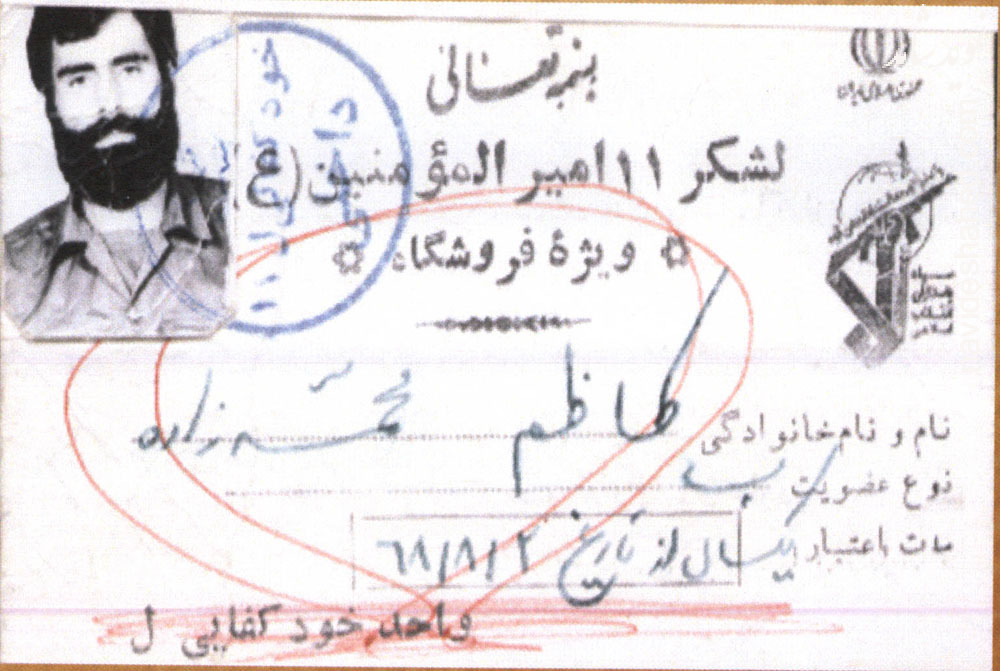 بسمه تعالی
جمهوری اسلامی ایران
لشکر ۱۱ امیر المؤمنین (ع)
ویژهٔ فروشگاه
سپاه
پاسداران
انقلاب
اسلامی
نام و نام خانوادگی کاظم زاده
نوع عضویت ب
مدت اعتبار یکسال از تاریخ ۶۸/۸/۲
واحد خود کفایی ل